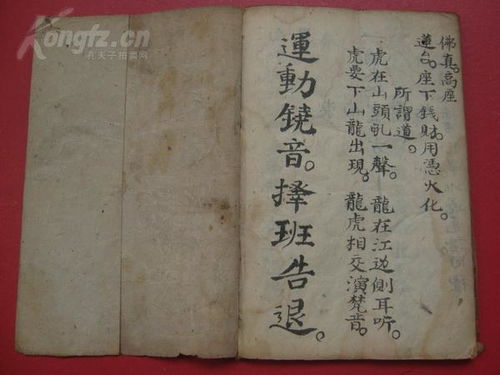 Kongfz.cn
孔夫子拍卖网
佛真。高座
蓮台。座下錢財。用憑火化。
所謂道。
虎在山頭吼一聲。龍在江边側耳听。
虎要下山龍出現。龍虎相交演梵音。
運動鐃音。擇班告退。